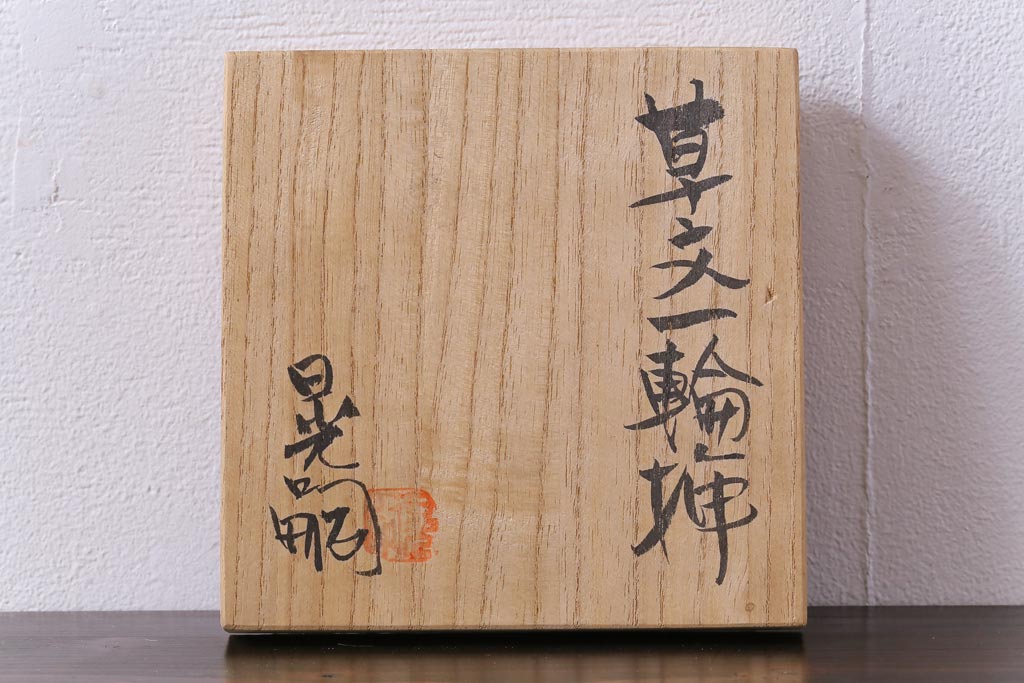 草文一輪挿
晃嗣